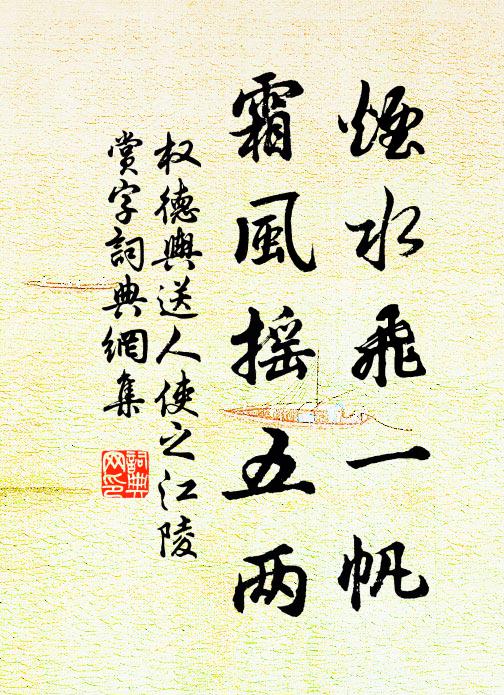 煙水飛一帆
霜風搖五两
权德輿送人使之江陵
赏字詞典網集
詞典网印